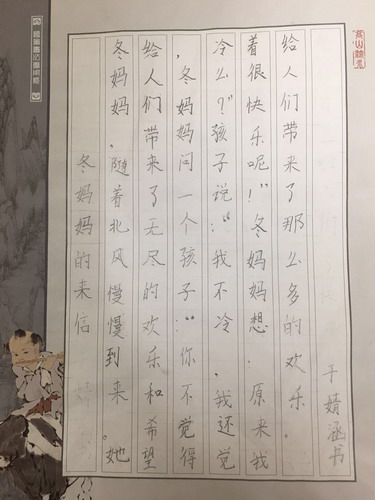 冬妈妈的来信
冬妈妈,随着北风慢慢到来。她
给人们带来了无尽的欢乐和希望
,冬妈妈问一个孩子:“你不觉得
冷么?”孩子说:“我不冷,我还觉
着很快乐呢!”冬妈妈想:原来我
给人们带来了那么多的欢乐。
于婧涵书